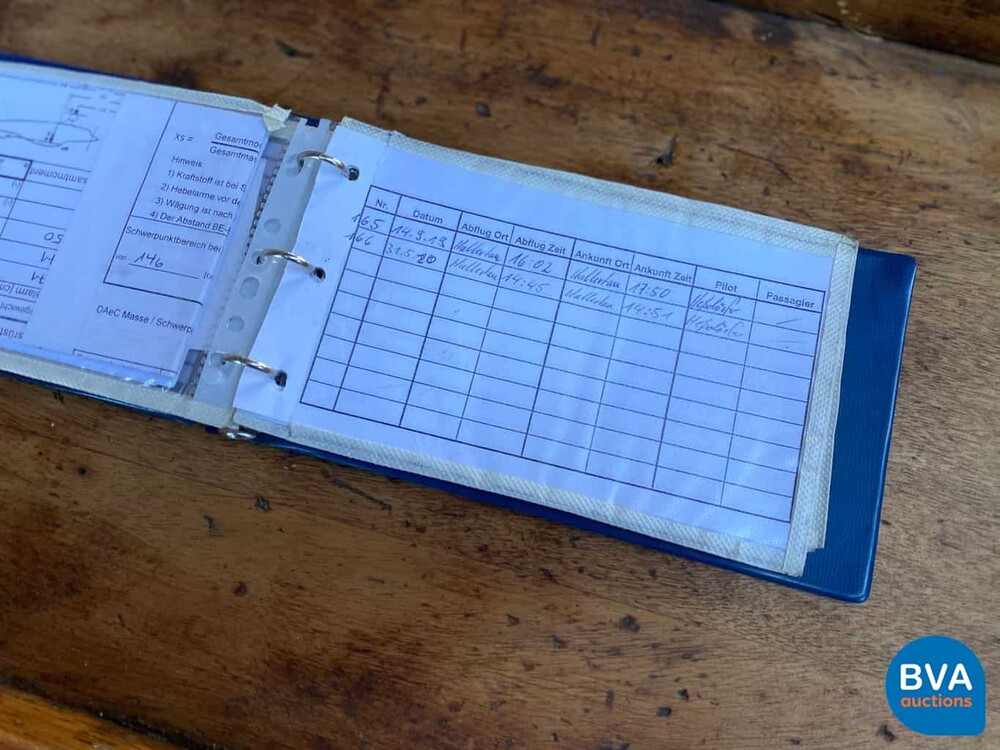 XS = Gesamtmo
Gesamtma
Hinweis:
1) Kraftstoff ist bei S
2) Hebelarme vor de
3) Wägung ist nach
4) Der Abstand BE-
Schwerpunktbereich bei
von 146
DAeC Masse / Schwerp
samtmoment
Nr. Datum Abflug Ort Abflug Zeit Ankunft Ort Ankunft Zeit Pilot Passagier
165 14.9.19 Hallertau 16:02 Hallertau 17:50
166 31.5 20 Hallertau 14:45 Hallertau 14:51
BVA
auctions